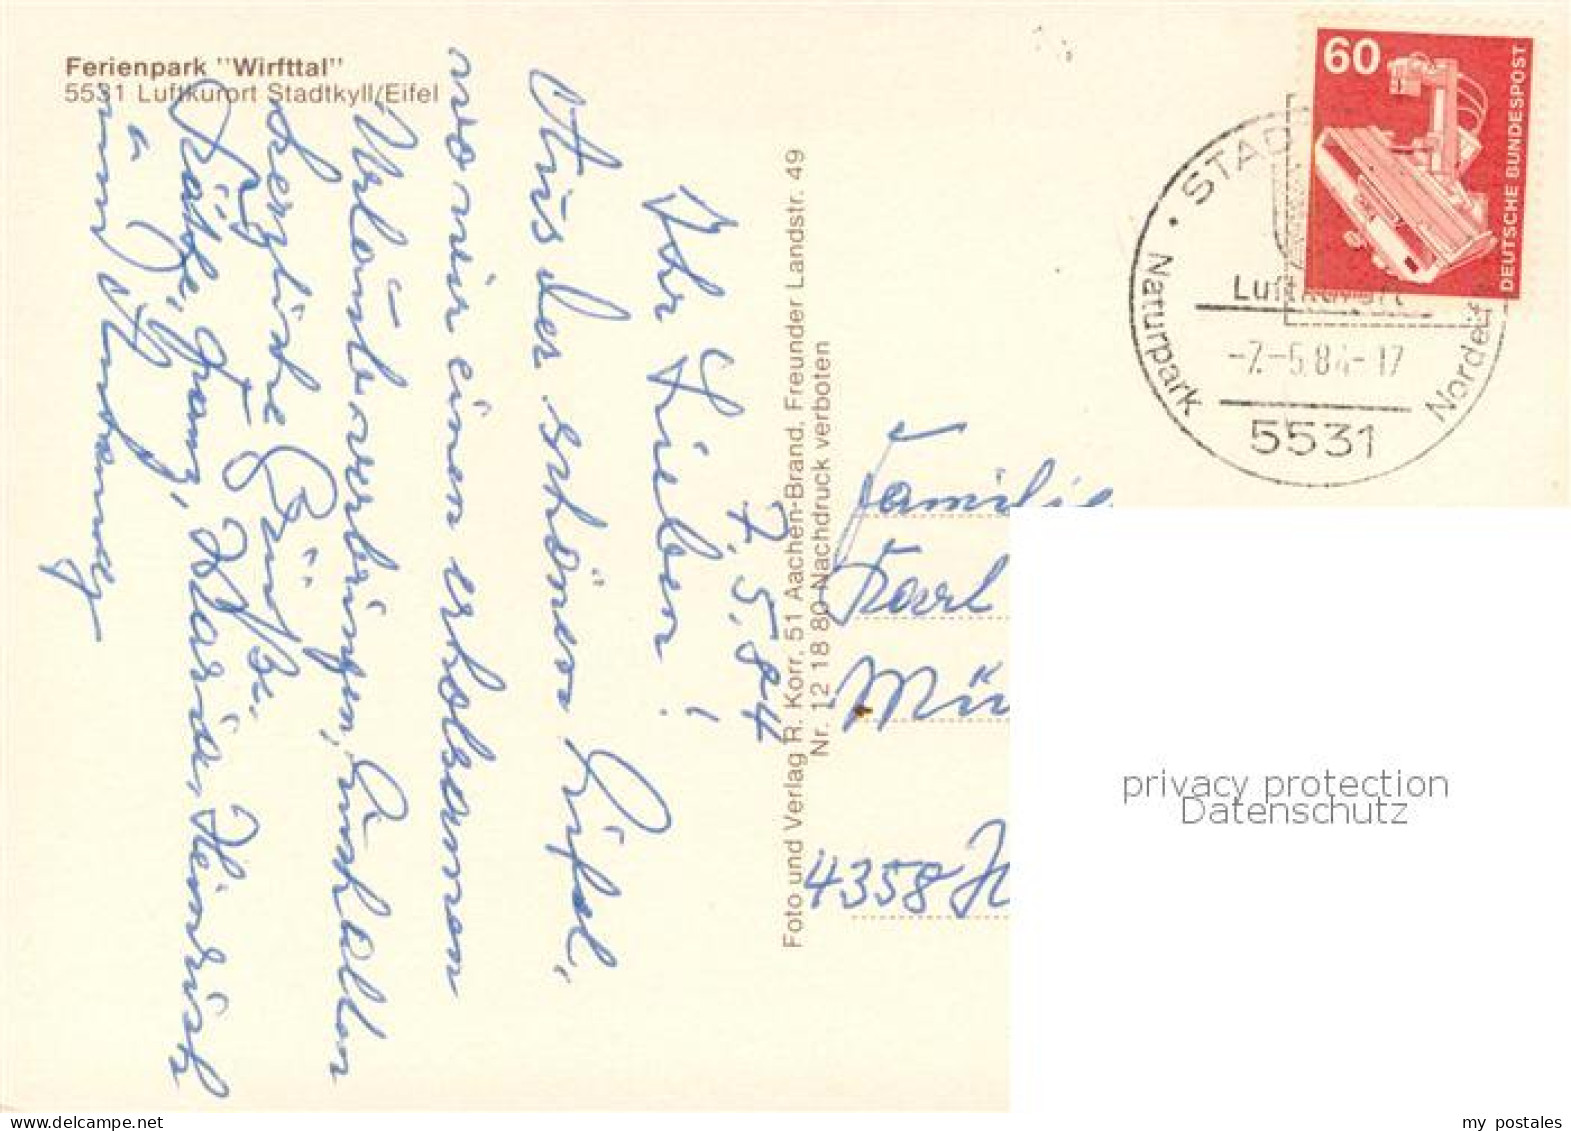 Ferienpark "Wirfttal"
5531 Luftkurort Stadtkyll/Eifel
7.5.84
Ihr Lieben!
Aus der schönen Eifel,
wo wir einen erholsamen
Urlaub verbringen, 
herzliche Grüße.
Käthe, Franz, Heinrich
Foto und Verlag R. Korr. 51 Aachen-Brand. Freunder Landstr. 49
Nr. 12 18 80 Nachdruck verboten
60
DEUTSCHE BUNDESPOST
STAD
Luftkurort
-7.-5.84-17
5531
Naturpark
Nordeif
Familie
Karl
Mü
4358 H
privacy protection
Datenschutz
© by intermedial.de
my postales